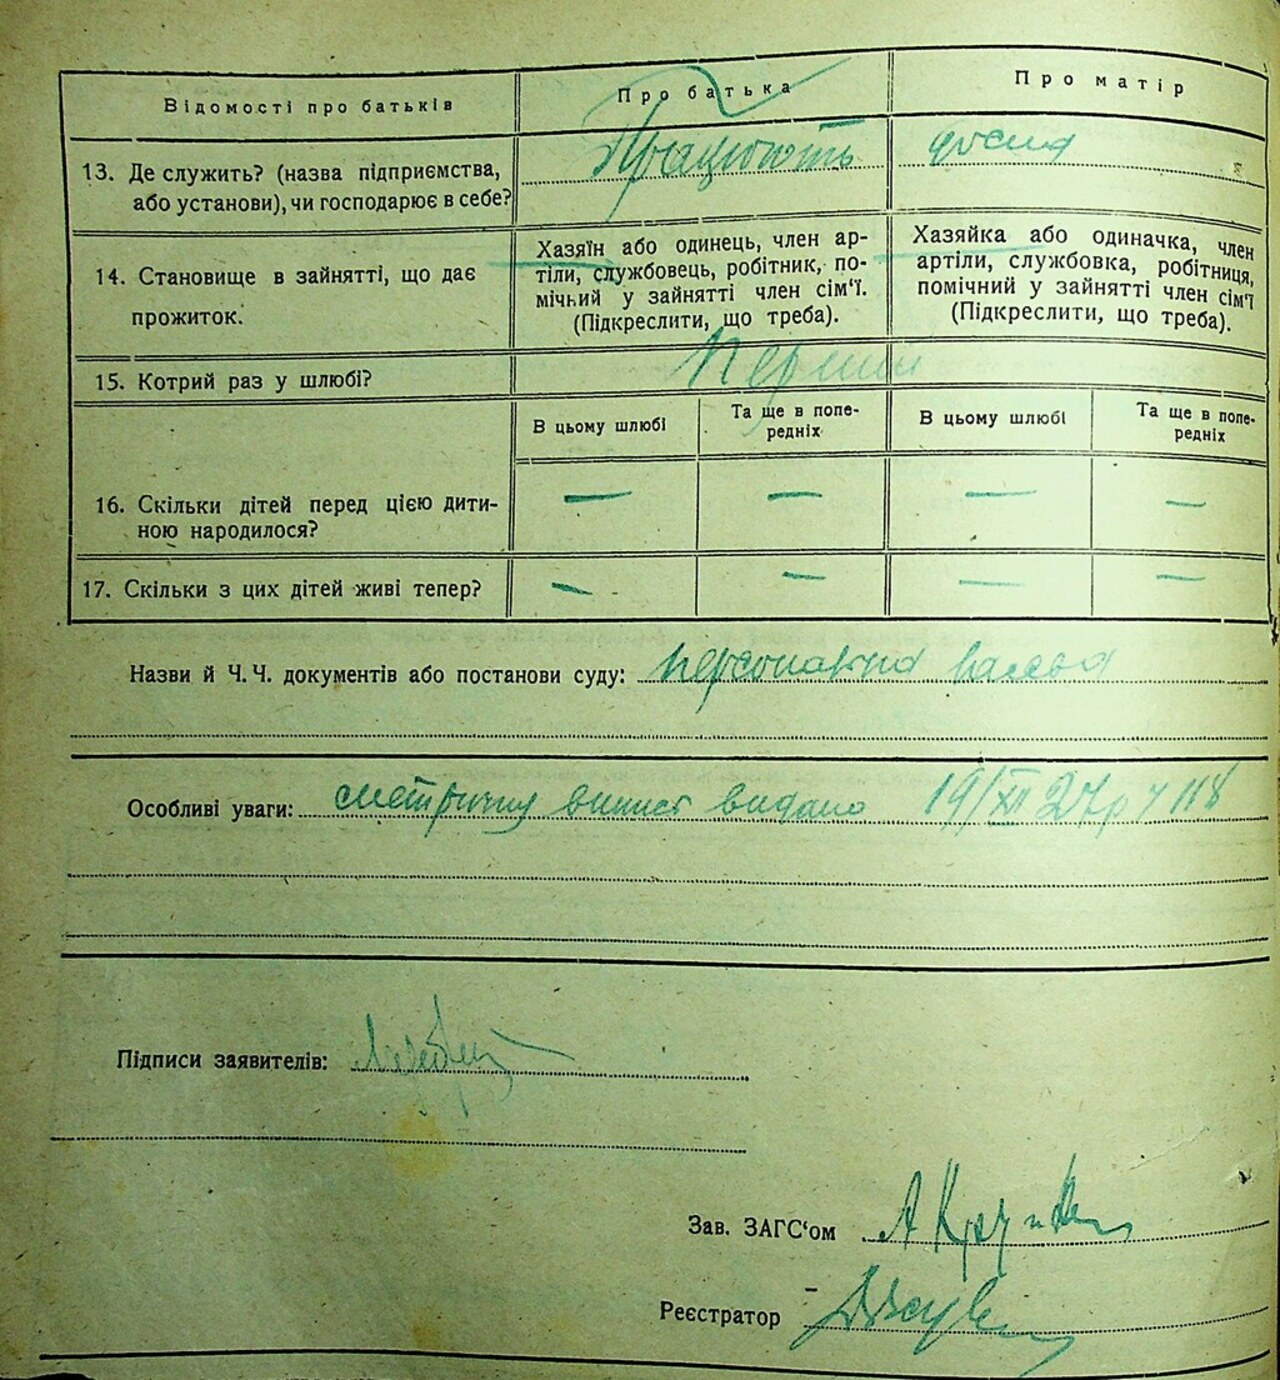 Відомості про батьків
Про батька
Про матір
13. Де служить? (назва підприємства,
або установи), чи господарює в себе?
Працюють
14. Становище в зайнятті, що дає
прожиток.
Хазяїн або одинець, член ар-
тіли, службовець, робітник, по-
мічьий у зайнятті член сім'ї.
(Підкреслити, що треба).
Хазяйка або одиначка, член
артіли, службовка, робітниця,
помічний у зайнятті член сім'ї
(Підкреслити, що треба).
15. Котрий раз у шлюбі?
Перший
В цьому шлюбі
Та ще в попе-
редніх
В цьому шлюбі
Та ще в попе-
редніх
16. Скільки дітей перед цією дити-
ною народилося?
— — — —
17. Скільки з цих дітей живі тепер?
— — — —
Назви й Ч. Ч. документів або постанови суду: персональна
Особливі уваги: метричну випис видано 19/XII 27р ч 118
Підписи заявителів:
Зав. ЗАГС'ом
Реєстратор